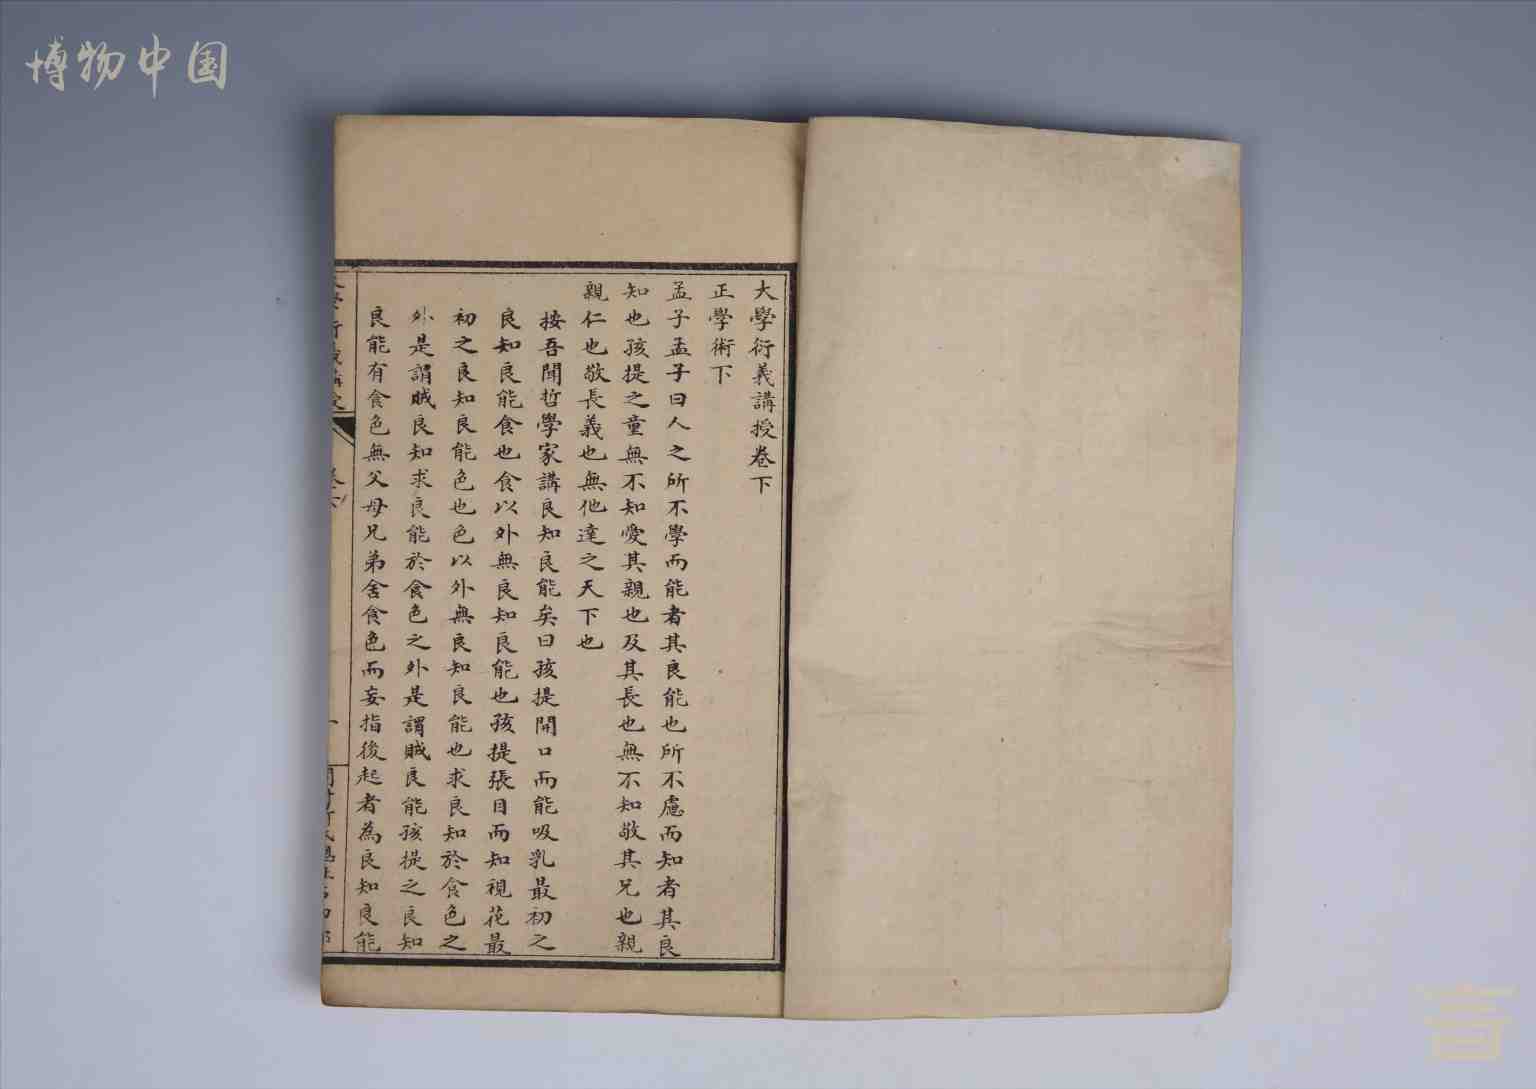 博物中国
大學衍義講授卷下
正學術下
孟子孟子曰人之所不學而能者其良能也所不慮而知者其良
知也孩提之童無不知愛其親也及其長也無不知敬其兄也親
親仁也敬長義也無他達之天下也
按吾聞哲學家講良知良能矣曰孩提開口而能吸乳最初之
良知良能食也食以外無良知良能也孩提張目而知視花最
初之良知良能色也色以外無良知良能也求良知於食色之
外是謂賊良知求良能於食色之外是謂賊良能孩提之良知
良能有食色無父母兄弟舍食色而妄指後起者為良知良能